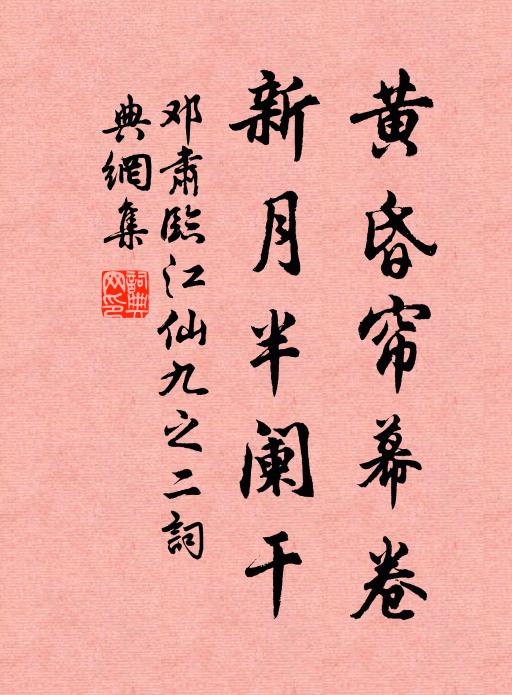 黄昏帘幕卷
新月半阑干
邓肃臨江仙九之二詞
典網集
詞典网印